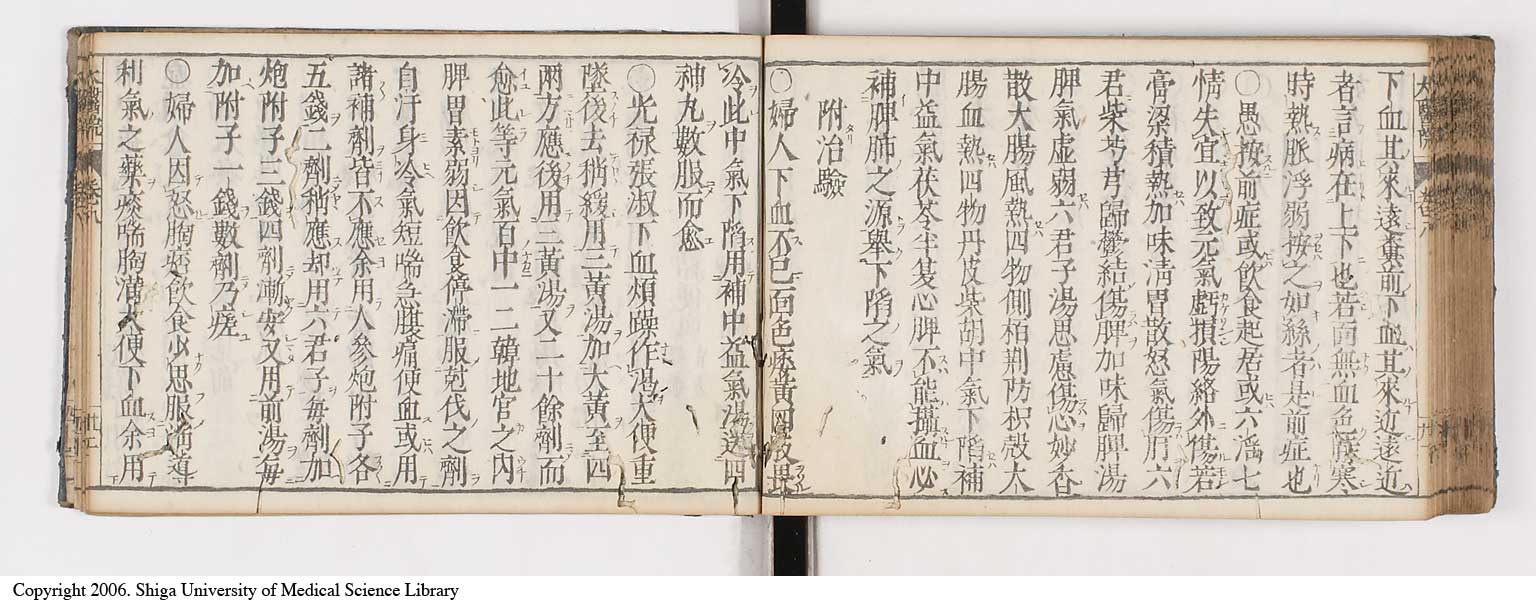 下血其來遠糞前下血其來近遠近
者言病在上下也若面無血色惡寒
時熱脈浮弱按之如絲者是前症也
○愚按前症或飲食起居或六淫七
情失宜以致元氣虧損陽絡外傷若
膏粱積熱加味清胃散怒氣傷肝六
君柴芍芎歸鬱結傷脾加味歸脾湯
脾氣虛弱六君子湯思慮傷心妙香
散大腸風熱四物側栢荆防枳殼大
腸血熱四物丹皮柴胡中氣下陷補
中益氣茯苓半夏心脾不能攝血必
補脾肺之源舉下陷之氣
附治驗
○婦人下血不已面色痿黃四肢畏
冷此中氣下陷用補中益氣湯送四
神丸數服而愈
○光祿張淑人下血煩躁作渴大便重
墜後去稍緩用三黃湯加大黃至四
兩方應後用三黃湯又二十餘劑而
愈此等元氣百中一二韓地官之內
脾胃素弱因飲食停滯服尅伐之劑
自汗身冷氣短喘急腹痛便血或用
諸補劑皆不應余用人參炮附子各
五錢二劑稍應却用六君子每劑加
炮附子三錢四劑漸安又用前湯每
加附子一錢數劑乃瘥
○婦人因怒胸痞飲食少思服消導
利氣之藥痰喘胸滿大便下血余用
Copyright 2006. Shiga University of Medical Science Library